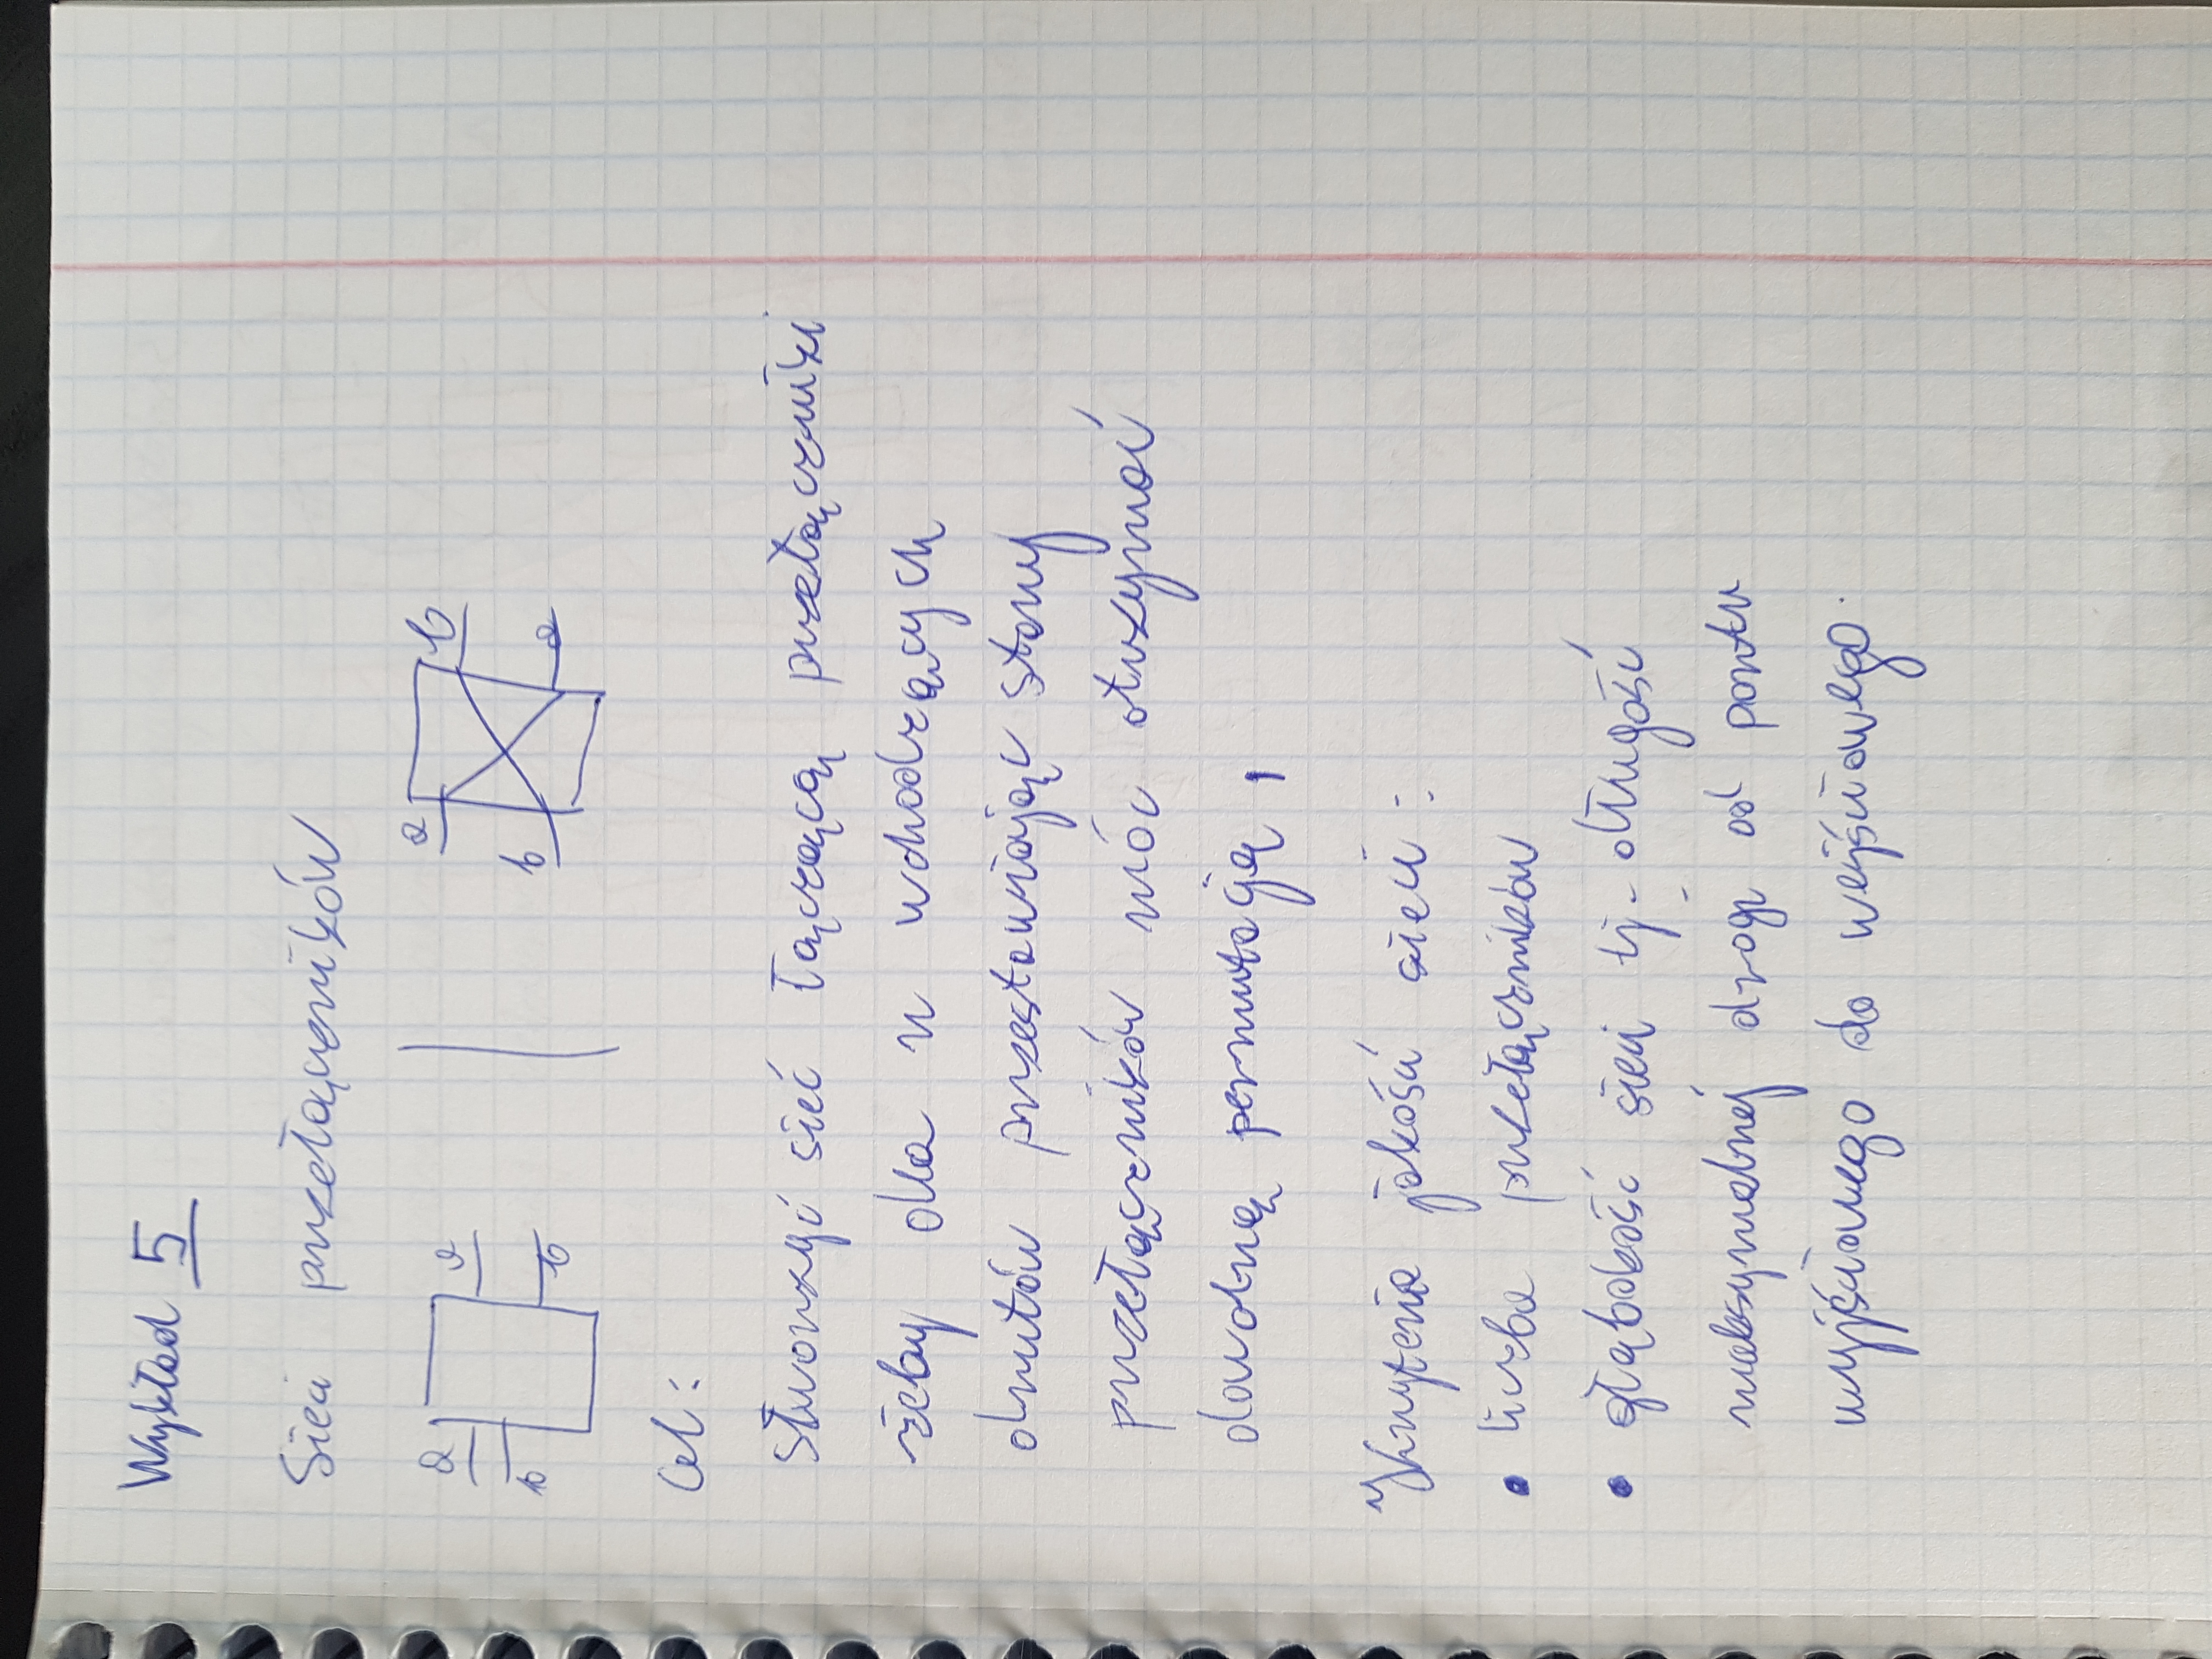 Wykład 5
Sieci przełączników
a a a b
b b b a
Cel:
stworzyć sieć łączącą przełączniki
żeby dla n wchodzących
drutów przestawiając stany
przełączników móc otrzymać
dowolną permutację,
Kryteria jakości sieci:
• liczba przełączników
• głębokość sieci tj. długość
maksymalnej drogi od portu
wyjściowego do wejściowego.